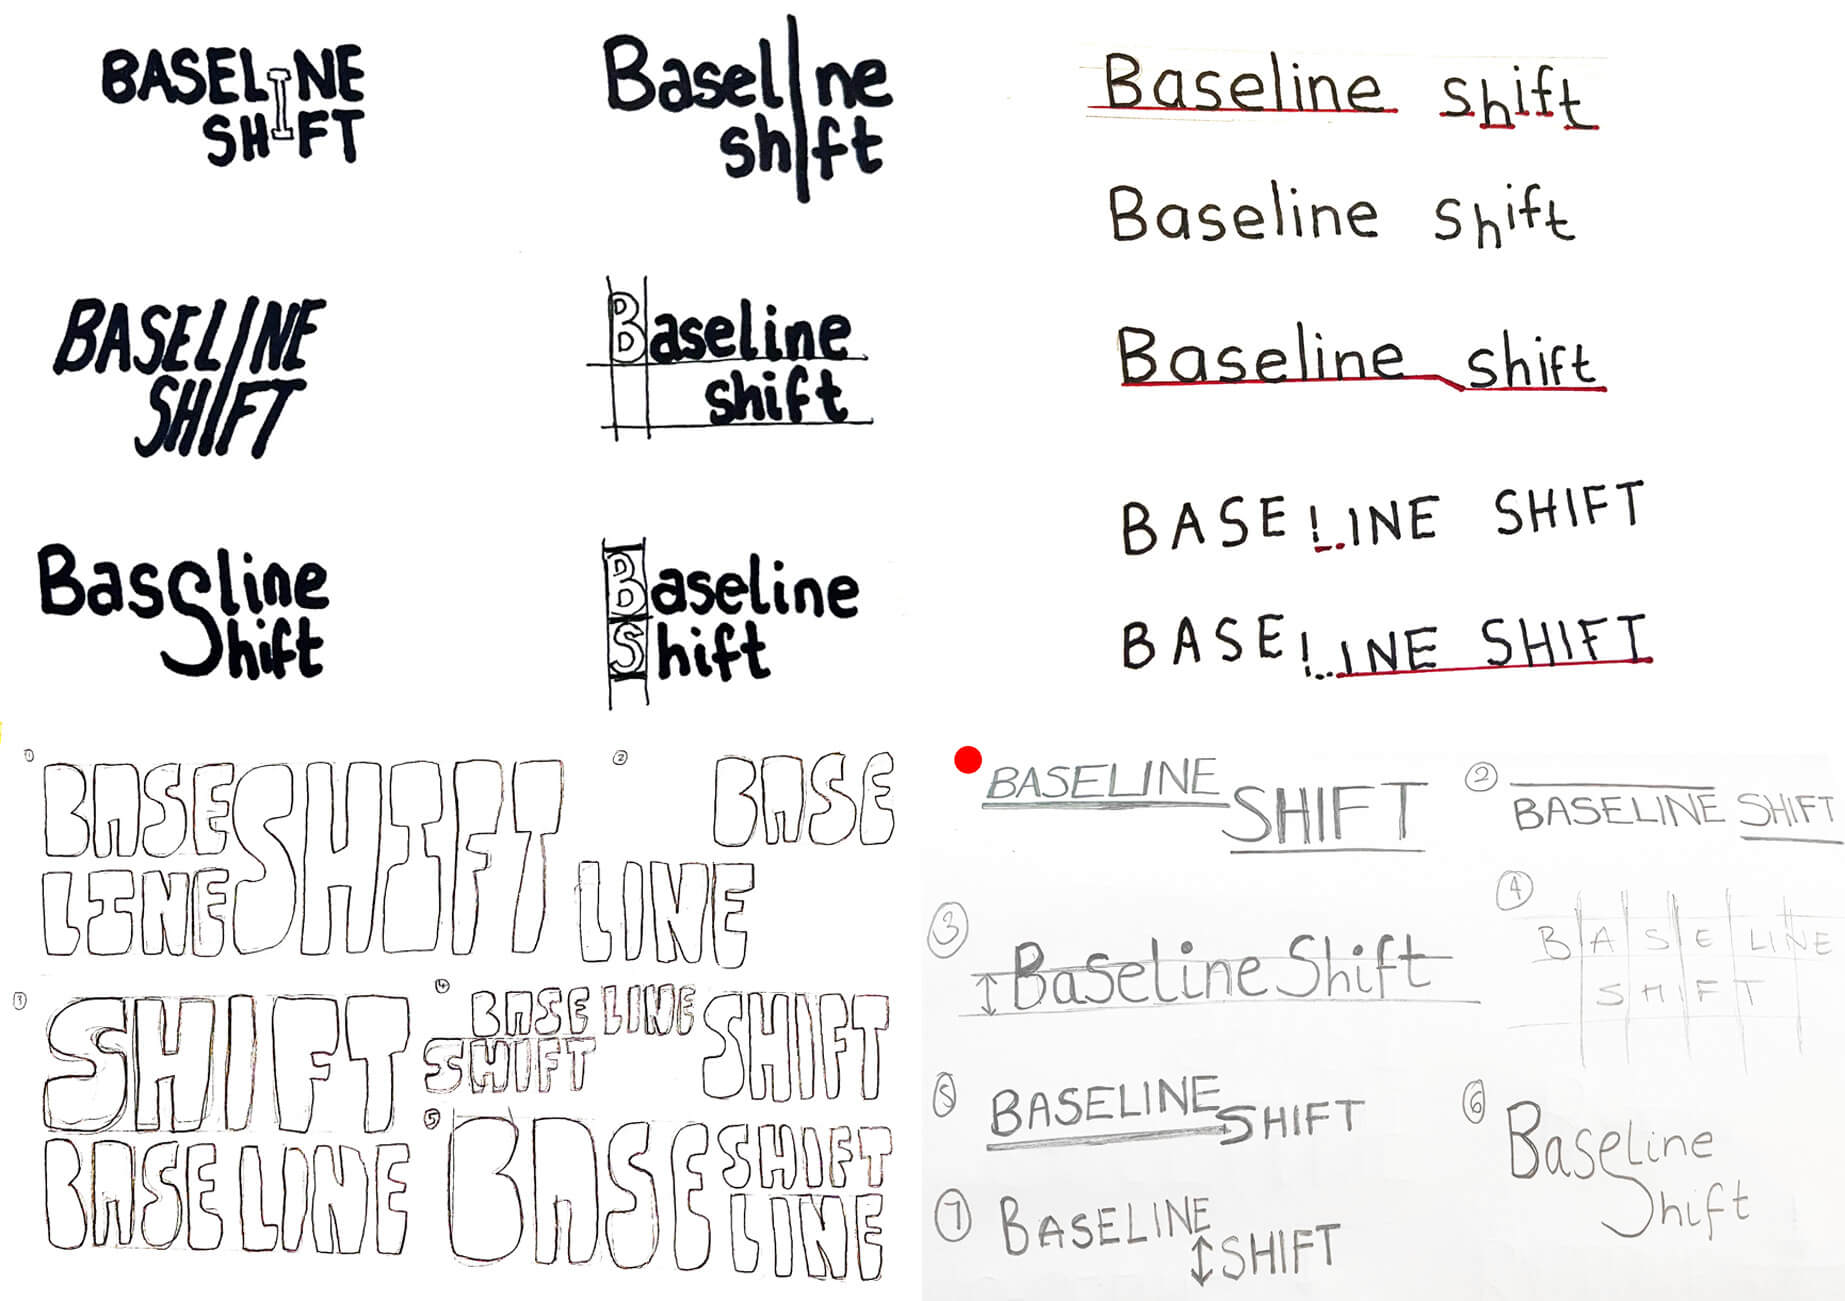 BASELINE
SHIFT
Baseline
shift
BASELINE
SHIFT
Baseline
shift
Baseline
Shift
Baseline
Shift
Baseline shift
Baseline shift
Baseline shift
BASELINE SHIFT
BASELINE SHIFT
1
BASE SHIFT
LINE
2
BASE
LINE
3
SHIFT
BASELINE
4
BASE LINE
SHIFT
SHIFT
5
BASE SHIFT
LINE
BASELINE SHIFT
2
BASELINE SHIFT
3
Baseline Shift
4
BASELINE
SHIFT
5
BASELINE SHIFT
6
Baseline
Shift
7
BASELINE
SHIFT